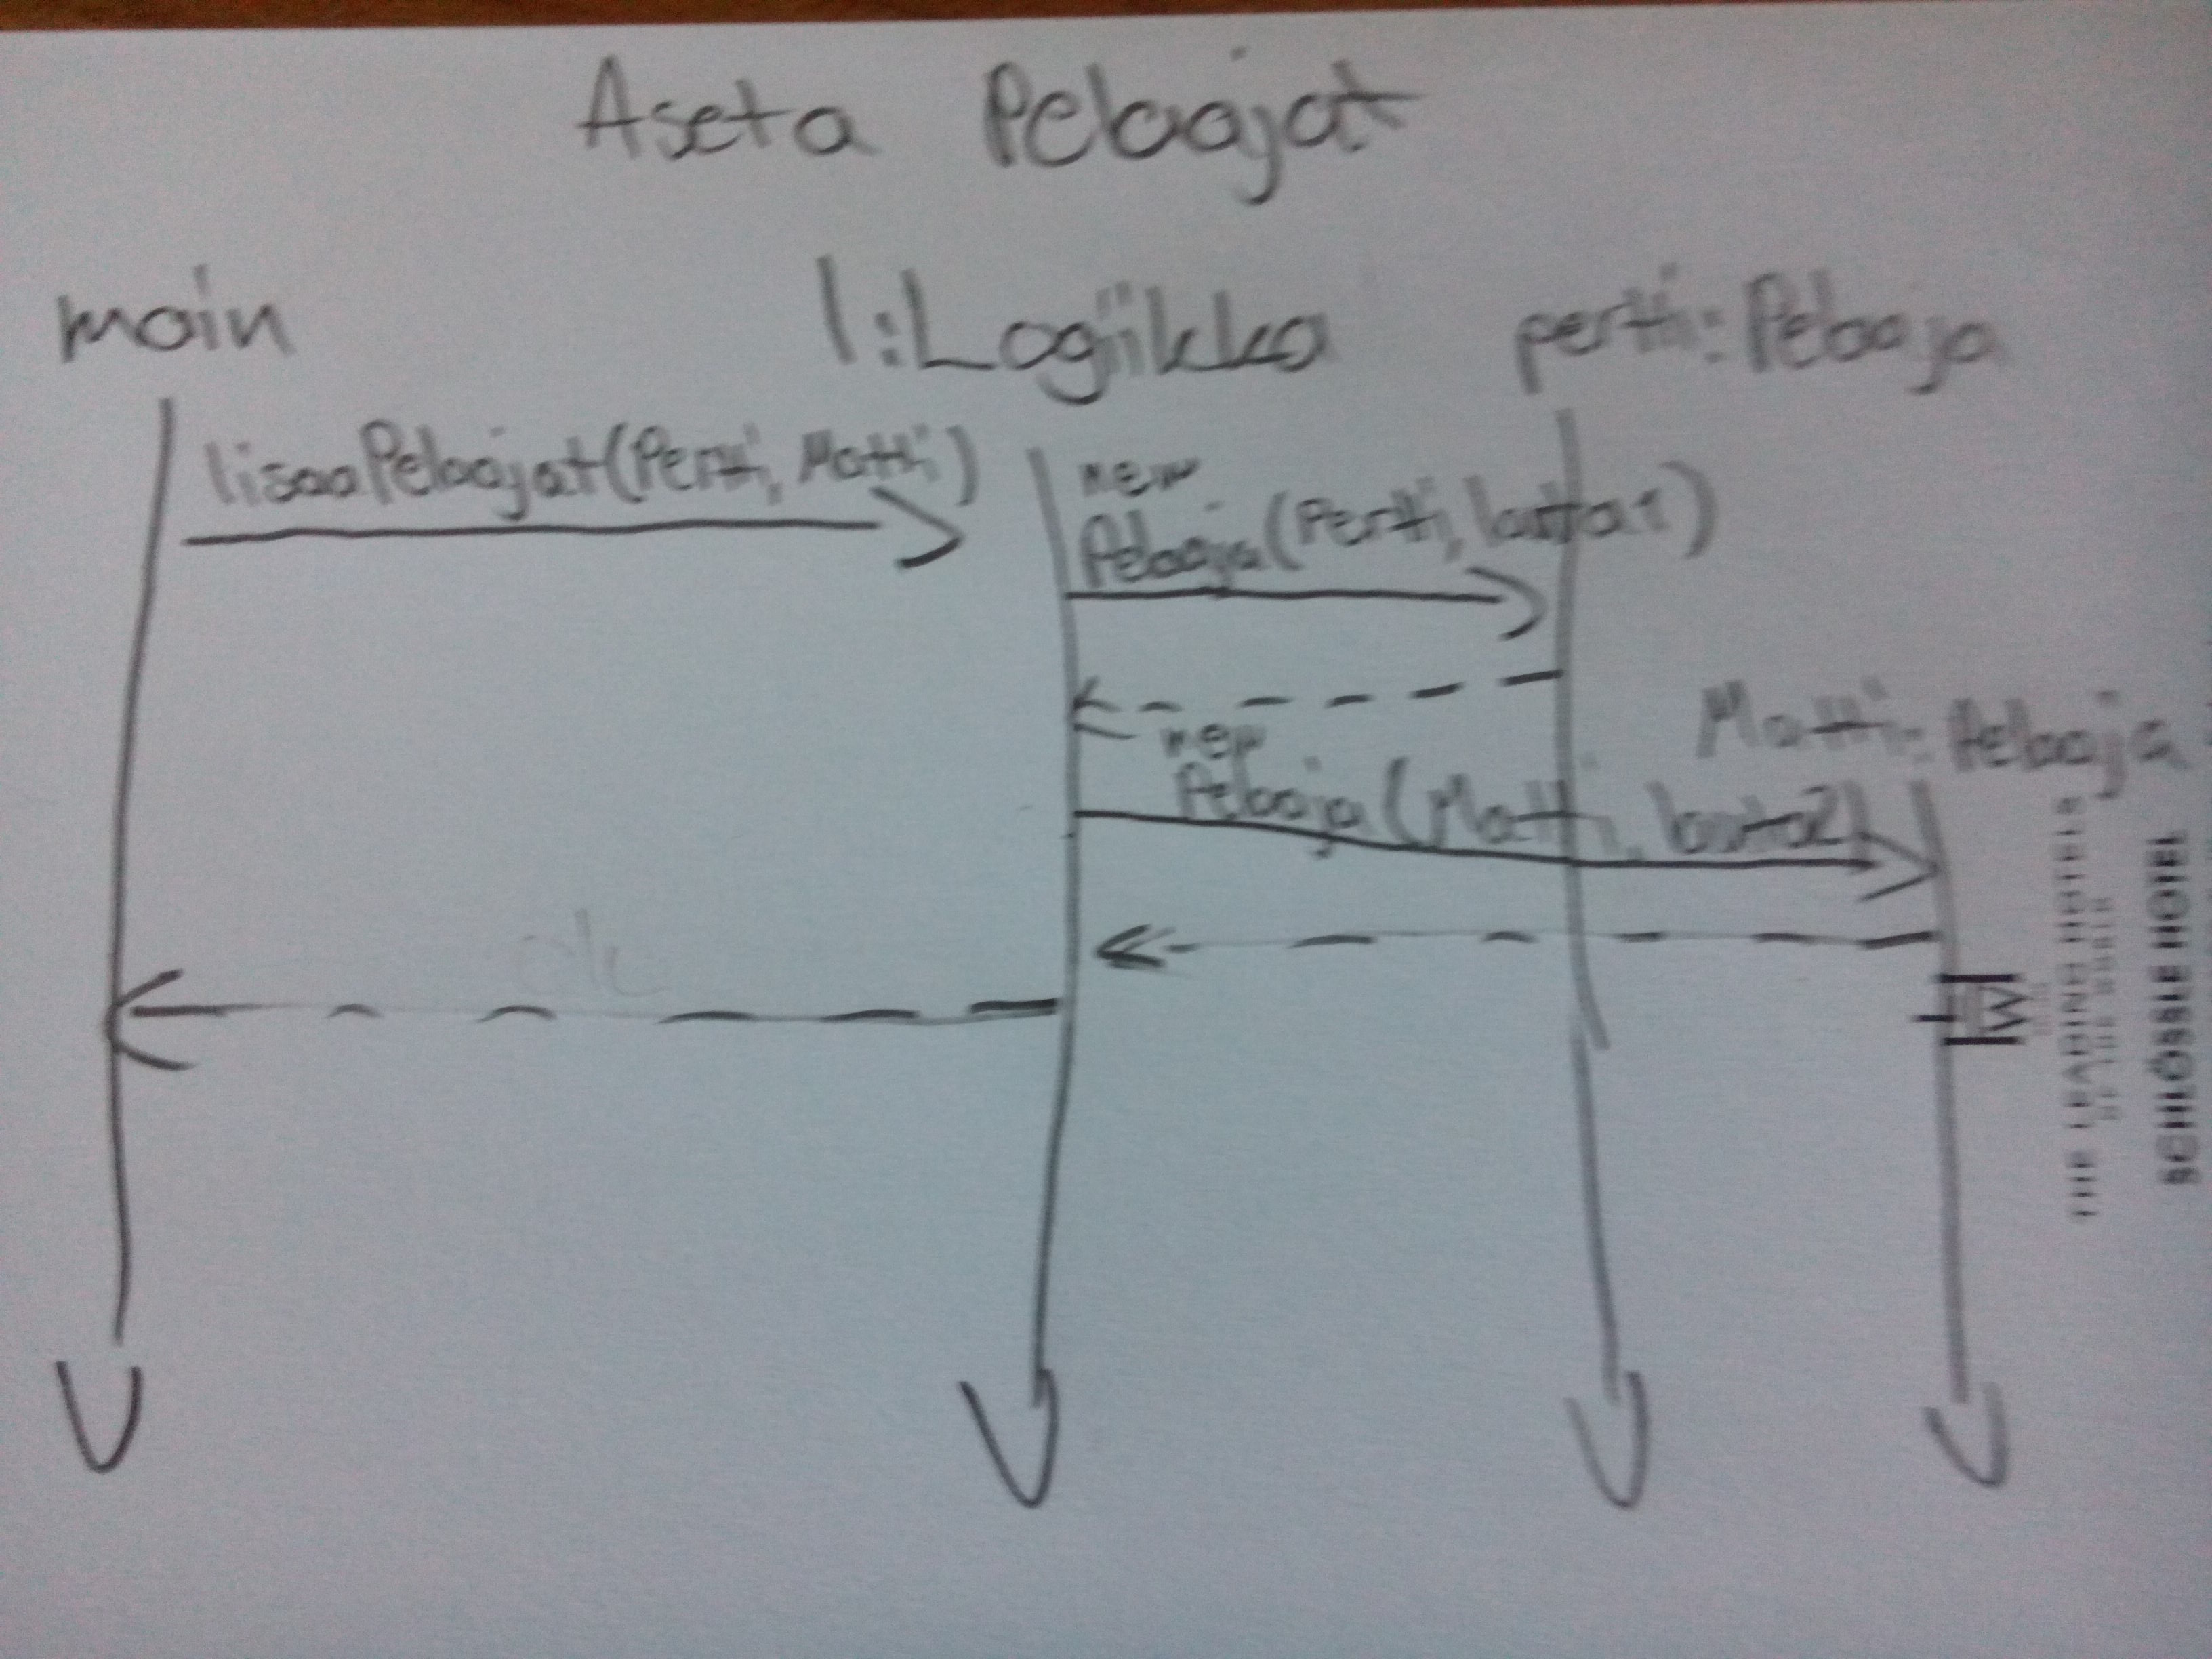 Aseta Pelaajat
main
l:Logiikka
pertti:Pelaaja
lisaaPelaajat(Pertti, Matti)
new
Pelaaja(Pertti, lauta1)
Matti:Pelaaja
new
Pelaaja(Matti, lauta2)
ok
SCHLÖSSLE HOTEL
THE LEADING HOTELS
OF THE WORLD